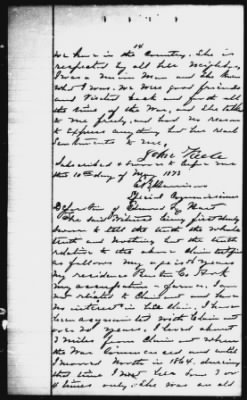 14
we live in the Country. She is
respected by all her Neighbors
I was a Union Man and She knew
what I was. We were good friends
and Visited back and forth all
the time of the War, and She talked
to me freely, and had no reason
to express anything but her real
Sentiments to me.
John Steele
Subscribed & Sworn to before me
the 10th day of May 1873
Special Commissioner
Deposition of Edward
The said Witness being first duly
Sworn to tell the truth the whole
truth and Nothing but the truth
relative to the above Claim testifies
as follows My age is years
my residence Benton Co Ark
my occupation farmer. I am
not related to Claimant and have
no interest in her Claim. I have
been acquainted with Claimant
over 20 years. I lived about
3 miles from Claimant when
the War Commenced and until
I moved North in 1864. during
that time I met her some 3 or
4 times only. She was an old